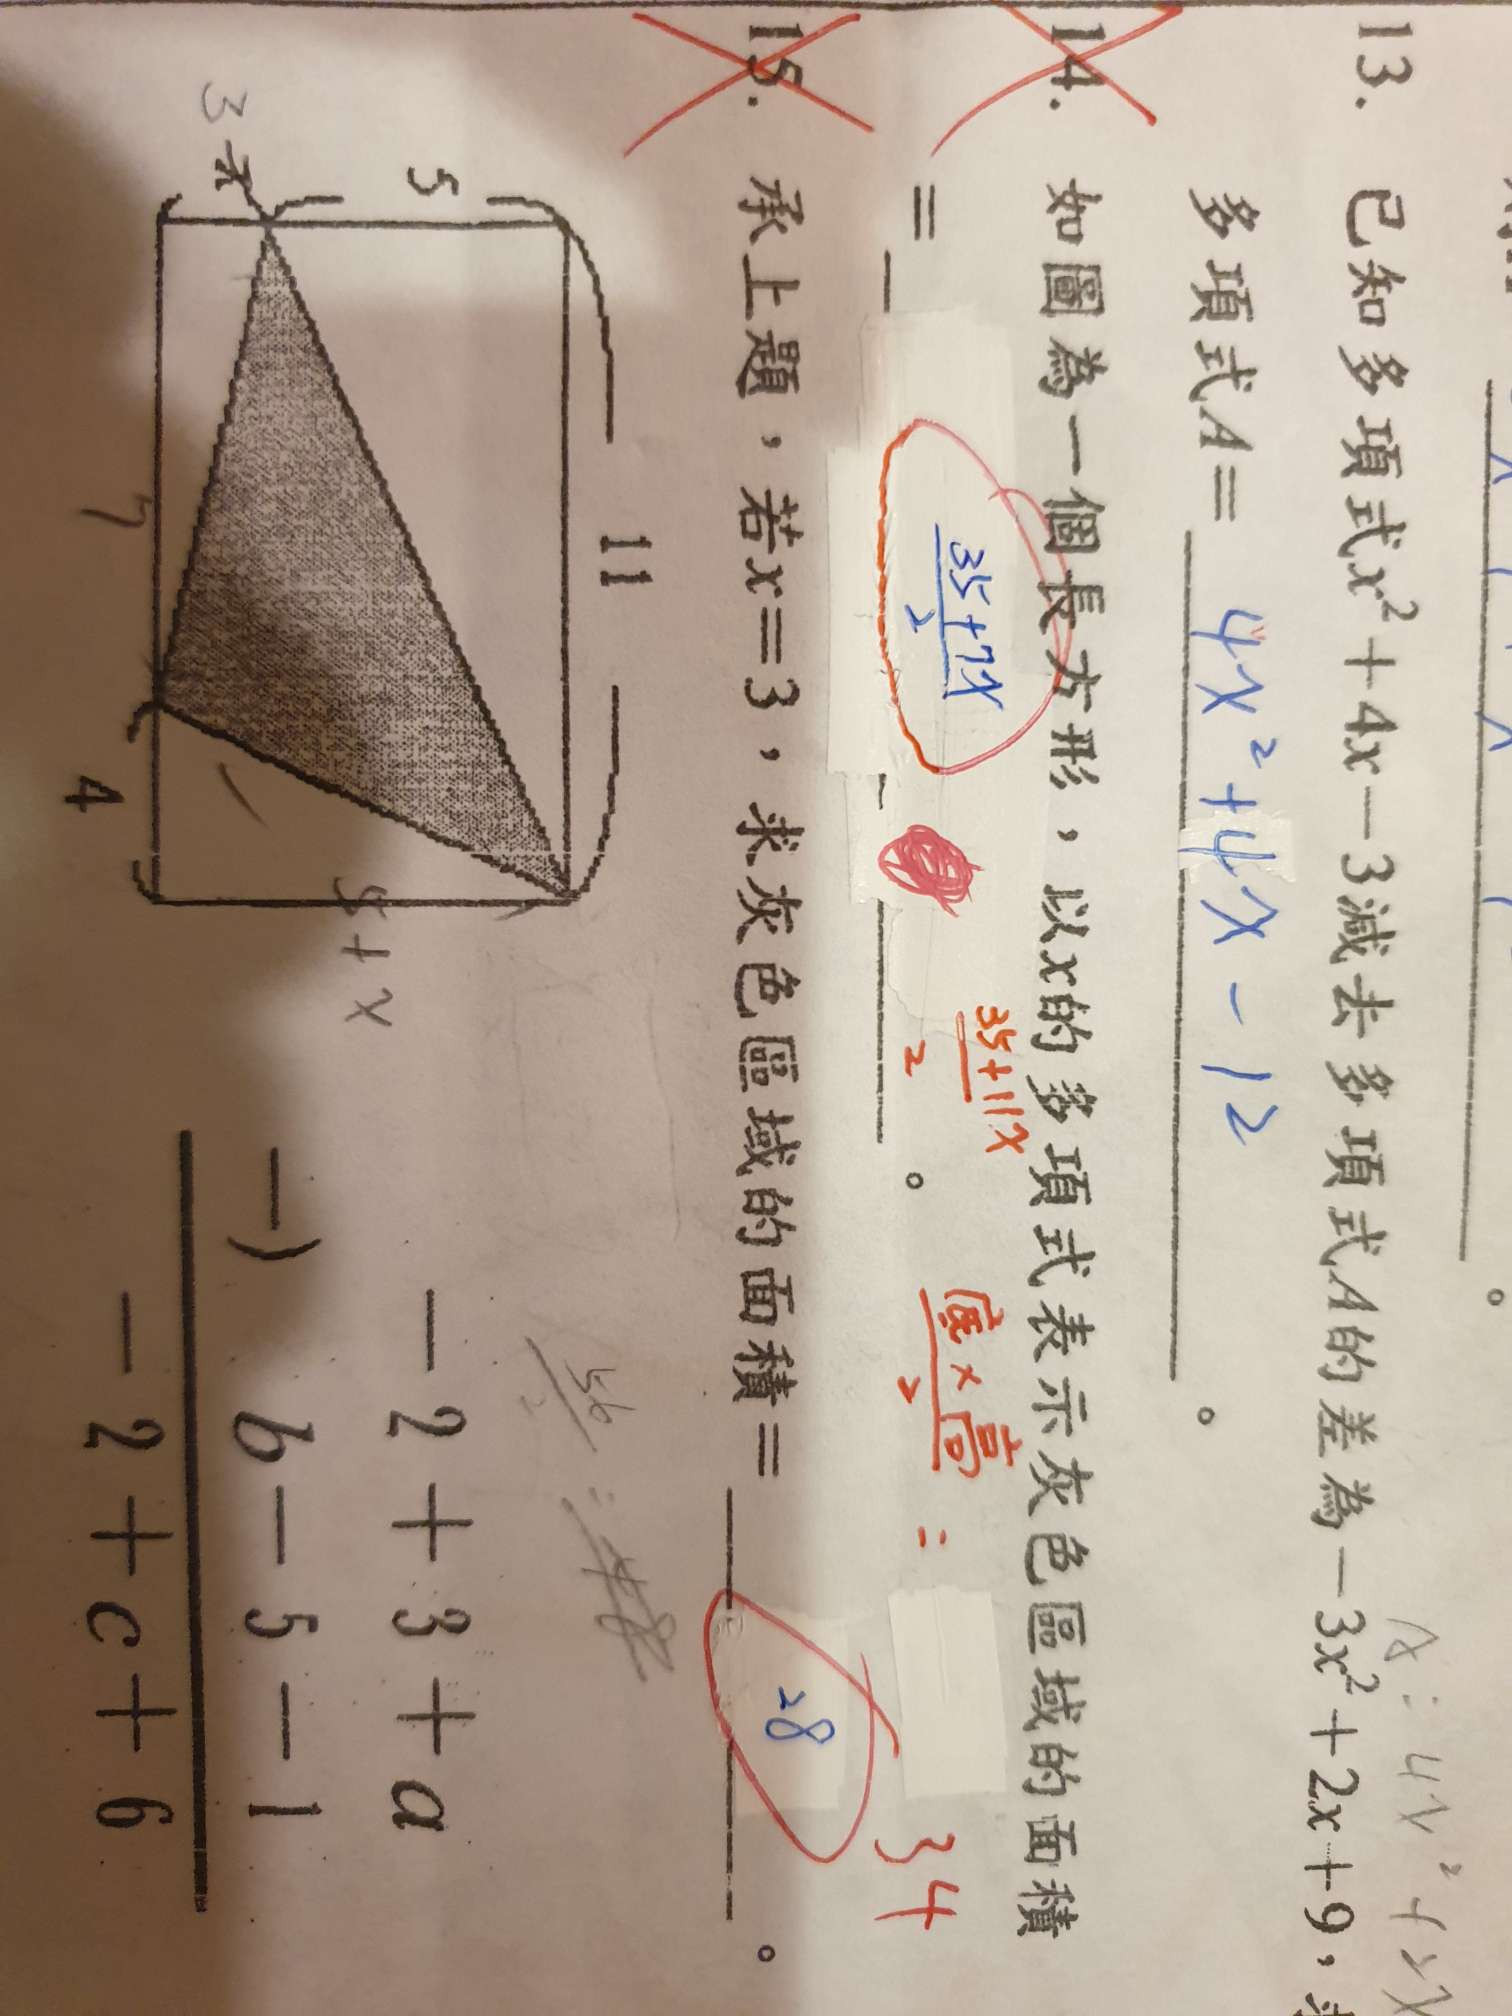 13. 已知多項式x²+4x-3減去多項式A的差為-3x²+2x+9，
多項式A= 4x²+4x-12 。
14. 如圖為一個長方形，以x的多項式表示灰色區域的面積
= 35+7x/2 。
35+11x/2
底×高/2 =
15. 承上題，若x=3，求灰色區域的面積= 28 。
34
56/2 =
11
5
3
x
7
4
5+x
-2+3+a
-) b-5-1
-2+c+6